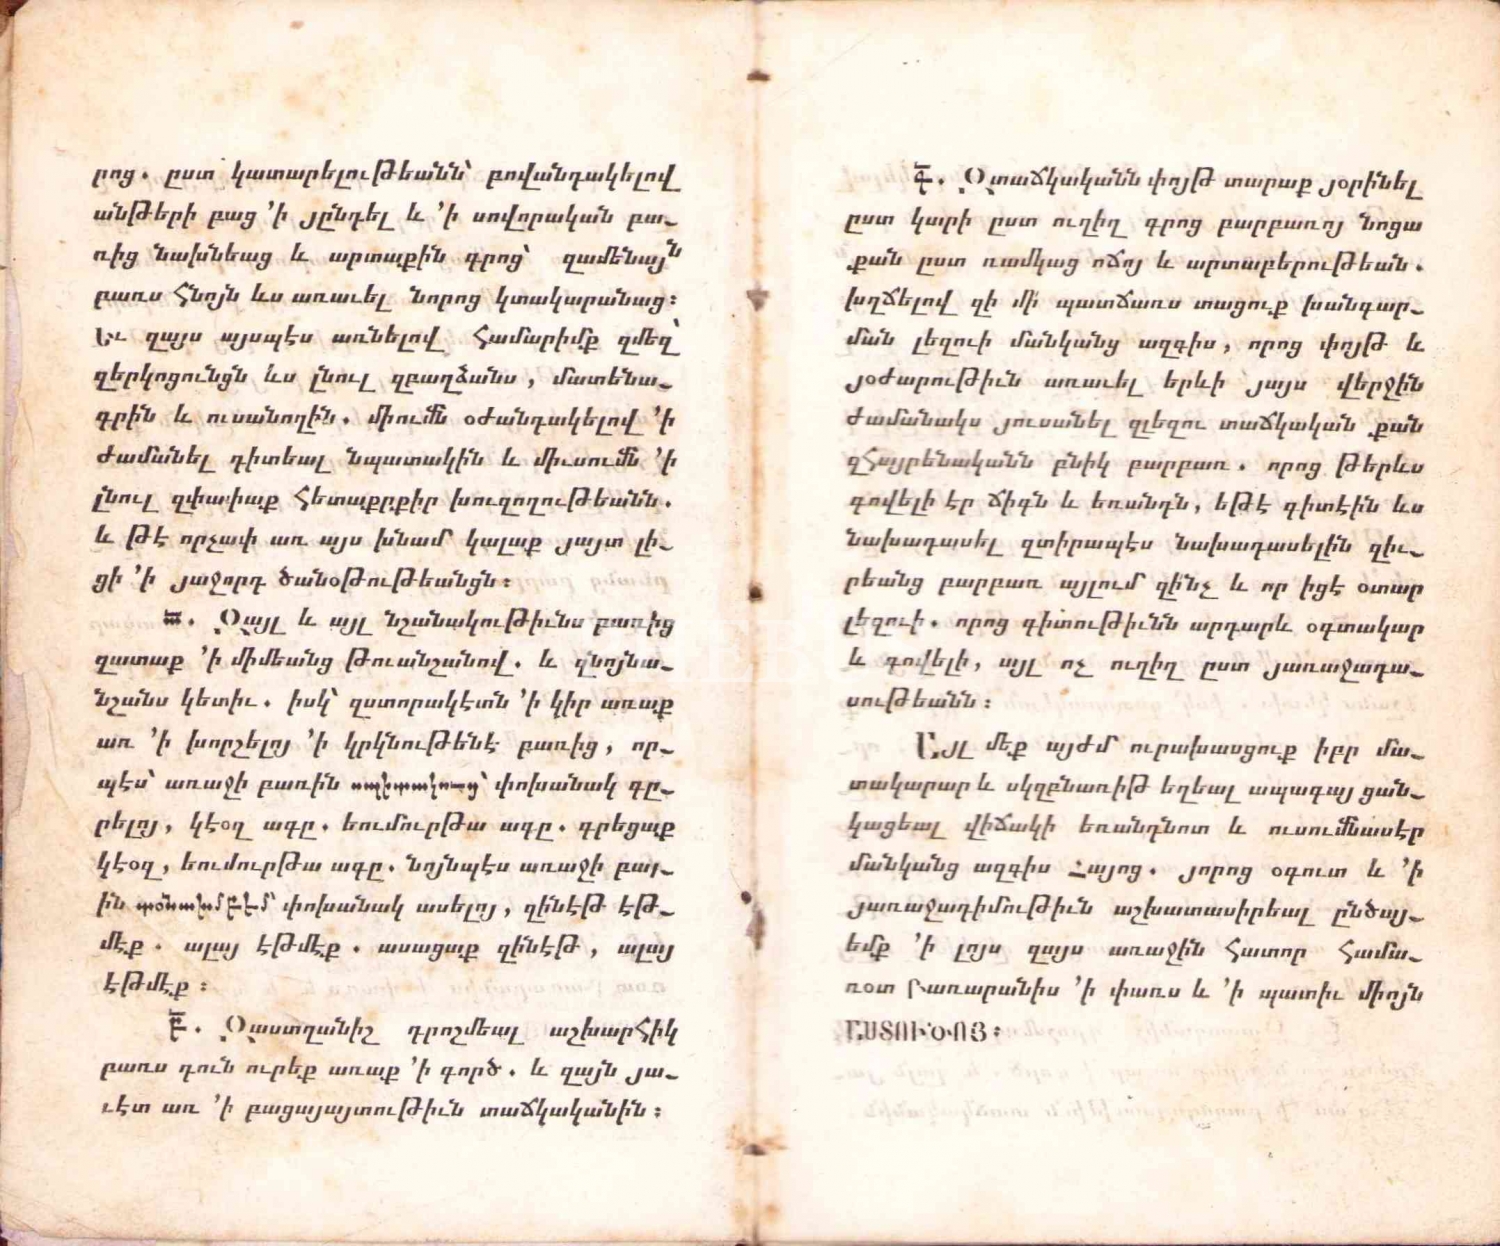 րոց. ըստ կատարելութեանն՝ բովանդակելով
անթերի բաց ՚ի յընդել և ՚ի սովորական բա֊
ռից նախնեաց և արտաքին գրոց՝ զամենայն
բառս հնոյն ևս առաւել նորոց կտակարանաց։
Եւ զայս այսպէս առնելով համարիմք զմեզ՝
զերկոցունցն ևս լնուլ զբաղձանս, մատենա֊
գրին և ուսանողին. միումն օժանդակելով ՚ի
ժամանել դիտեալ նպատակին և միւսումն ՚ի
լնուլ զփափաք հետաքրքիր խուզողութեանն.
և թէ որչափ առ այս խնամ կալաք յայտ լի֊
ցի ՚ի յաջորդ ծանօթութեանցն։
Ա. Զայլ և այլ նշանակութիւնս բառից
զատաք ՚ի միմեանց թուանշանով. և զնոյնա֊
նշանս կետիւ. իսկ՝ զստորակէտն ՚ի կիր առաք
առ ՚ի խորշելոյ ՚ի կրկնութենէ բառից, որ֊
պէս՝ առաջի բառին ապիտակուց՝ փոխանակ գը֊
րելոյ, կէօզ ագը. եումուրթա ագը. գրեցաք
կէօզ, եումուրթա ագը. նոյնպէս առաջի բայ֊
ին փոխանակ ասելոյ, զինէթ էթ֊
մէք. ալայ էթմէք. ասացաք զինէթ, ալայ
էթմէք։
Բ. Զաստղանիշ դրոշմեալ աշխարհիկ
բառս դուն ուրեք առաք ՚ի գործ. և զայն յա֊
ւէտ առ ՚ի բացայայտութիւն տաճկականին։
Գ. Զտաճկականն փոյթ տարաք յօրինել
ըստ կարի ըստ ուղիղ գրոց բարբառոյ նոցա
քան ըստ ռամկաց ոճոյ և արտաբերութեան.
խղճելով զի մի պատճառս տացուք խանգար֊
ման լեզուի մանկանց ազգիս, որոց փոյթ և
յօժարութիւն առաւել երևի յայս վերջին
ժամանակս յուսանել զլեզու տաճկական քան
զհայրենականն բնիկ բարբառ. որոց թերևս
գովելի էր ճիգն և եռանդն, եթէ գիտէին ևս
նախադասել զտիրապէս նախադասելին զիւ֊
րեանց բարբառ այլում զինչ և որ իցէ օտար
լեզուի. որոց գիտութիւնն արդարև օգտակար
և գովելի, այլ ոչ ուղիղ ըստ յառաջադա֊
սութեանն։
Այլ մեք այժմ ուրախասցուք իբր մա֊
տակարար և սկզբնառիթ եղեալ ապագայ ցան֊
կացեալ վիճակի եռանդնոտ և ուսումնասէր
մանկանց ազգիս Հայոց. յորոց օգուտ և ՚ի
յառաջադիմութիւն աշխատասիրեալ ընծայ֊
եմք ՚ի լոյս զայս առաջին հատոր համա֊
ռօտ Բառարանիս ՚ի փառս և ՚ի պատիւ միոյն
ԱՍՏՈՒԾՈՅ։